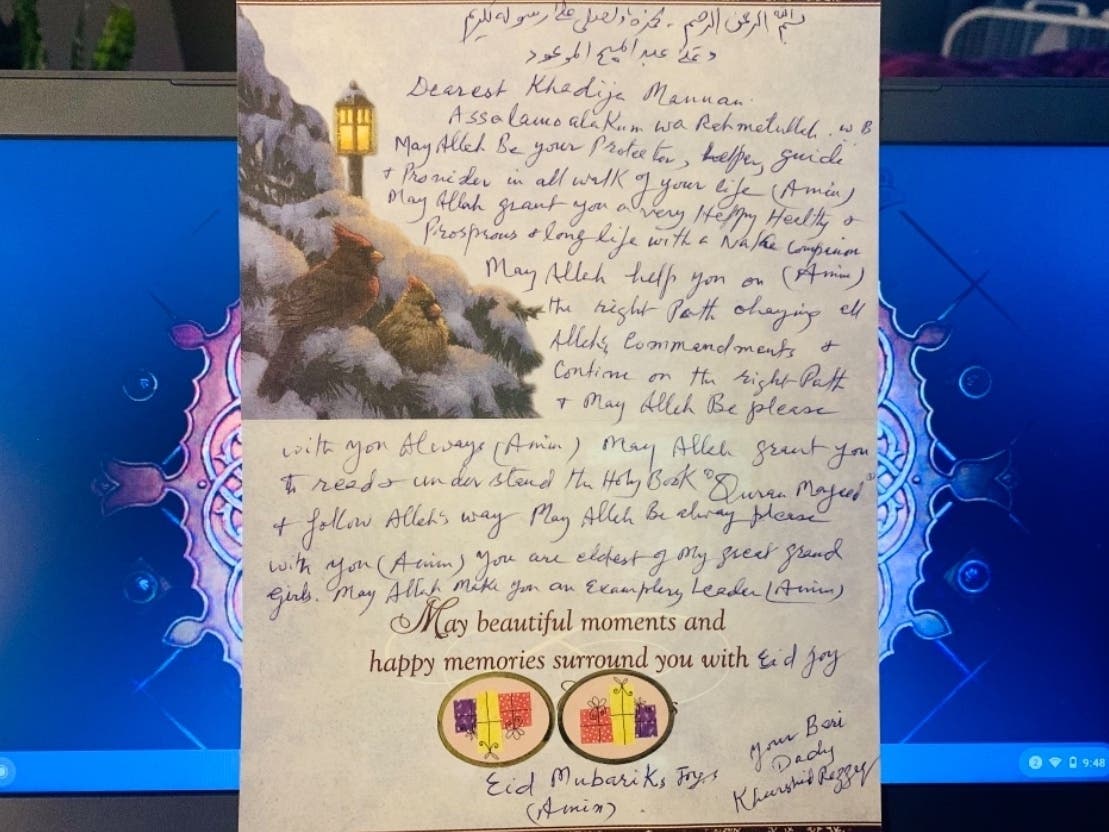 بسم الله الرحمن الرحيم . نحمدہ ونصلی علی رسوله الكريم
وعلی عبدہ المسيح الموعود
Dearest Khadija Mannan
Assalamoalakum wa Rahmatullah. w B
May Allah Be your Protector, helper, guide
& Provider in all walk of your life (Amin)
May Allah grant you a very Happy Healthy &
Prosprous & long life with a Nake Companion
May Allah help you on (Amin)
the right Path obeying all
Allah's Commandments &
Continue on the right Path
& May Allah Be please
with you Always (Amin) May Allah grant you
to read & understand the Holy Book "Quran Majeed"
& follow Allah's way May Allah Be alway please
with you (Amin) You are eldest of my great grand
girls. May Allah make you an Examplery Leader (Amin)
May beautiful moments and
happy memories surround you with Eid Joy
Eid Mubariks Joys
(Amin)
Your Bari
Dady
Khurshid
2 9:48